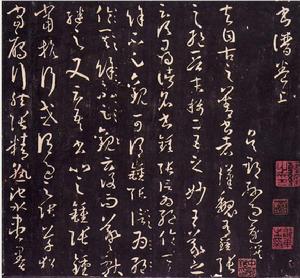 書譜卷上
吳郡孫過庭撰
夫自古之善書者漢魏有鍾張
之絕晉末稱二王之妙王羲之
云頃尋諸名書鍾張信為絕倫其
餘不足觀可謂鍾張云沒而羲獻
繼之又云吾書比之鍾張鍾
當抗行或謂過之張草猶
當鴈行然張精熟池水盡墨